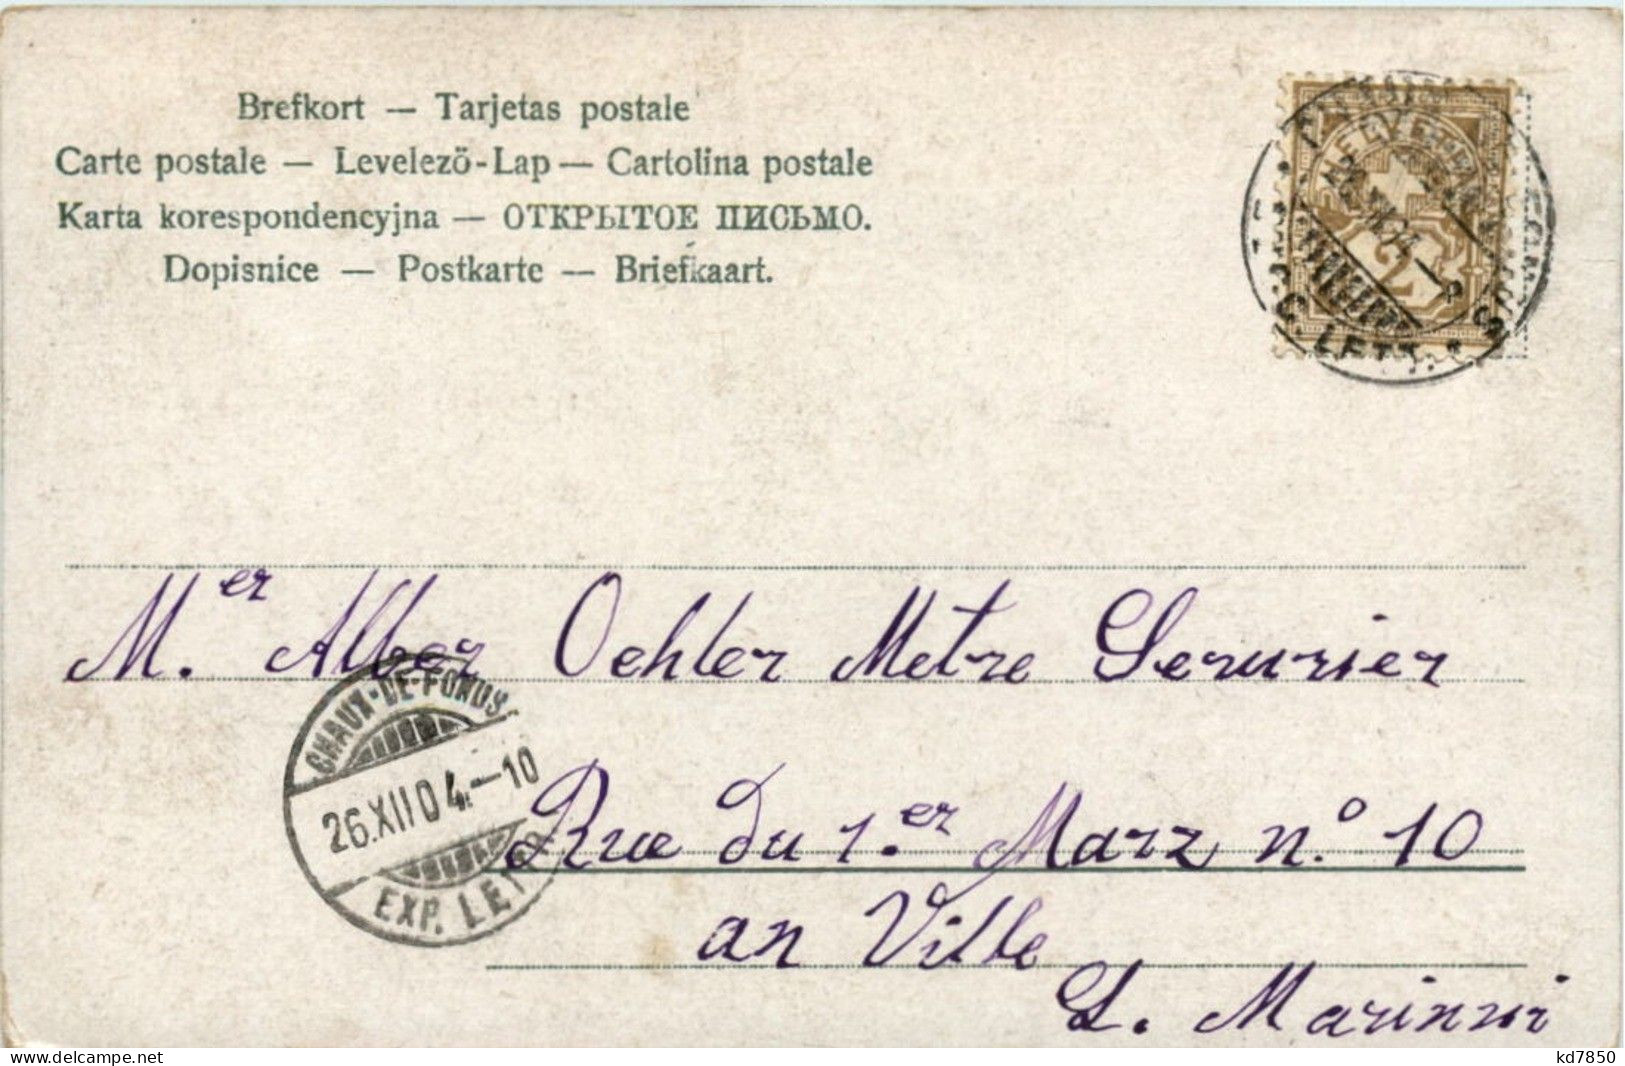 Brefkort — Tarjetas postale
Carte postale — Levelező-Lap — Cartolina postale
Karta korespondencyjna — ОТКРЫТОЕ ПИСЬМО.
Dopisnice — Postkarte — Briefkaart.
HELVETIA
26.XII.04.—9
2
LETT.
M.er Alber Oehler Metre Serurier
CHAUX-DE-FONDS
26.XII04.—10
EXP. LETT.
Rue du 1.er Marz n.o 10
an Ville
L. Marinni
kd7850
delcampe.net